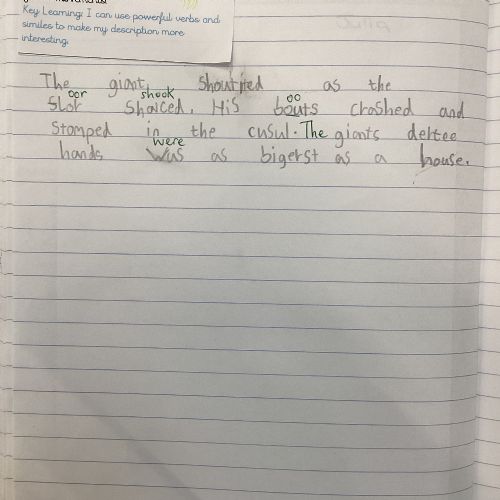 Key Learning: I can use powerful verbs and
similes to make my description more
interesting.
The giant shoutited as the
oor shook
slor shaiced. His bouts crashed and
oo
stomped in the cusul. The giants deltee
were
hands was as bigerst as a house.